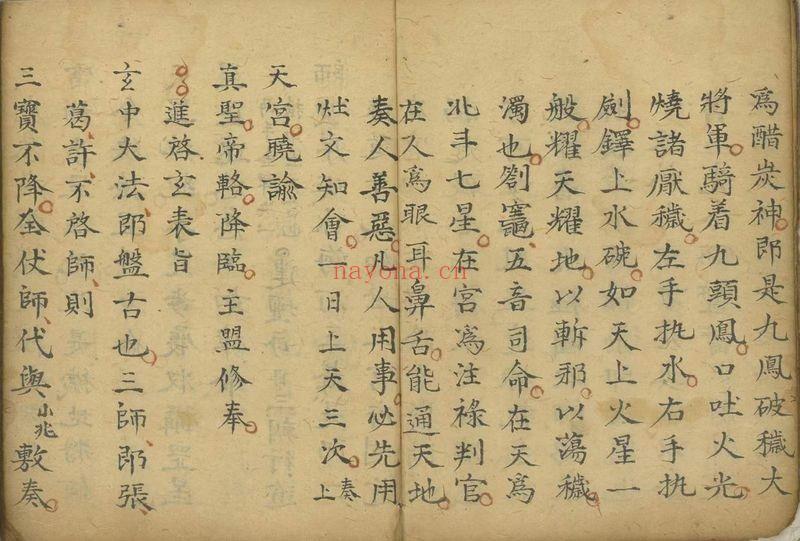 爲醋炭神即是九鳳破穢大
將軍騎着九頭鳳口吐火光
燒諸厭穢左手执水右手执
劍鐸上水碗如天上火星一
般耀天耀地以斬邪以蕩穢
濁也劄竈五音司命在天爲
北斗七星在宮爲注祿判官
在人爲眼耳鼻舌能通天地
奏人善惡凡人用事必先用
灶文知會一日上天三次上奏
天宮曉諭
真聖帝輅降臨主盟修奉
進啓玄表旨
玄中大法即盤古也三師即張
葛許不啓師則
三寶不降全仗師代與小兆敷奏
nayona.cn